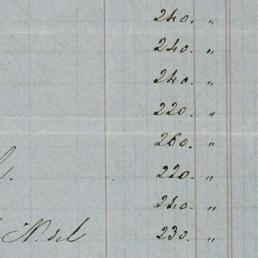 240. "
240. "
240. "
220. "
260. "
220. "
240. "
N. del 230. "